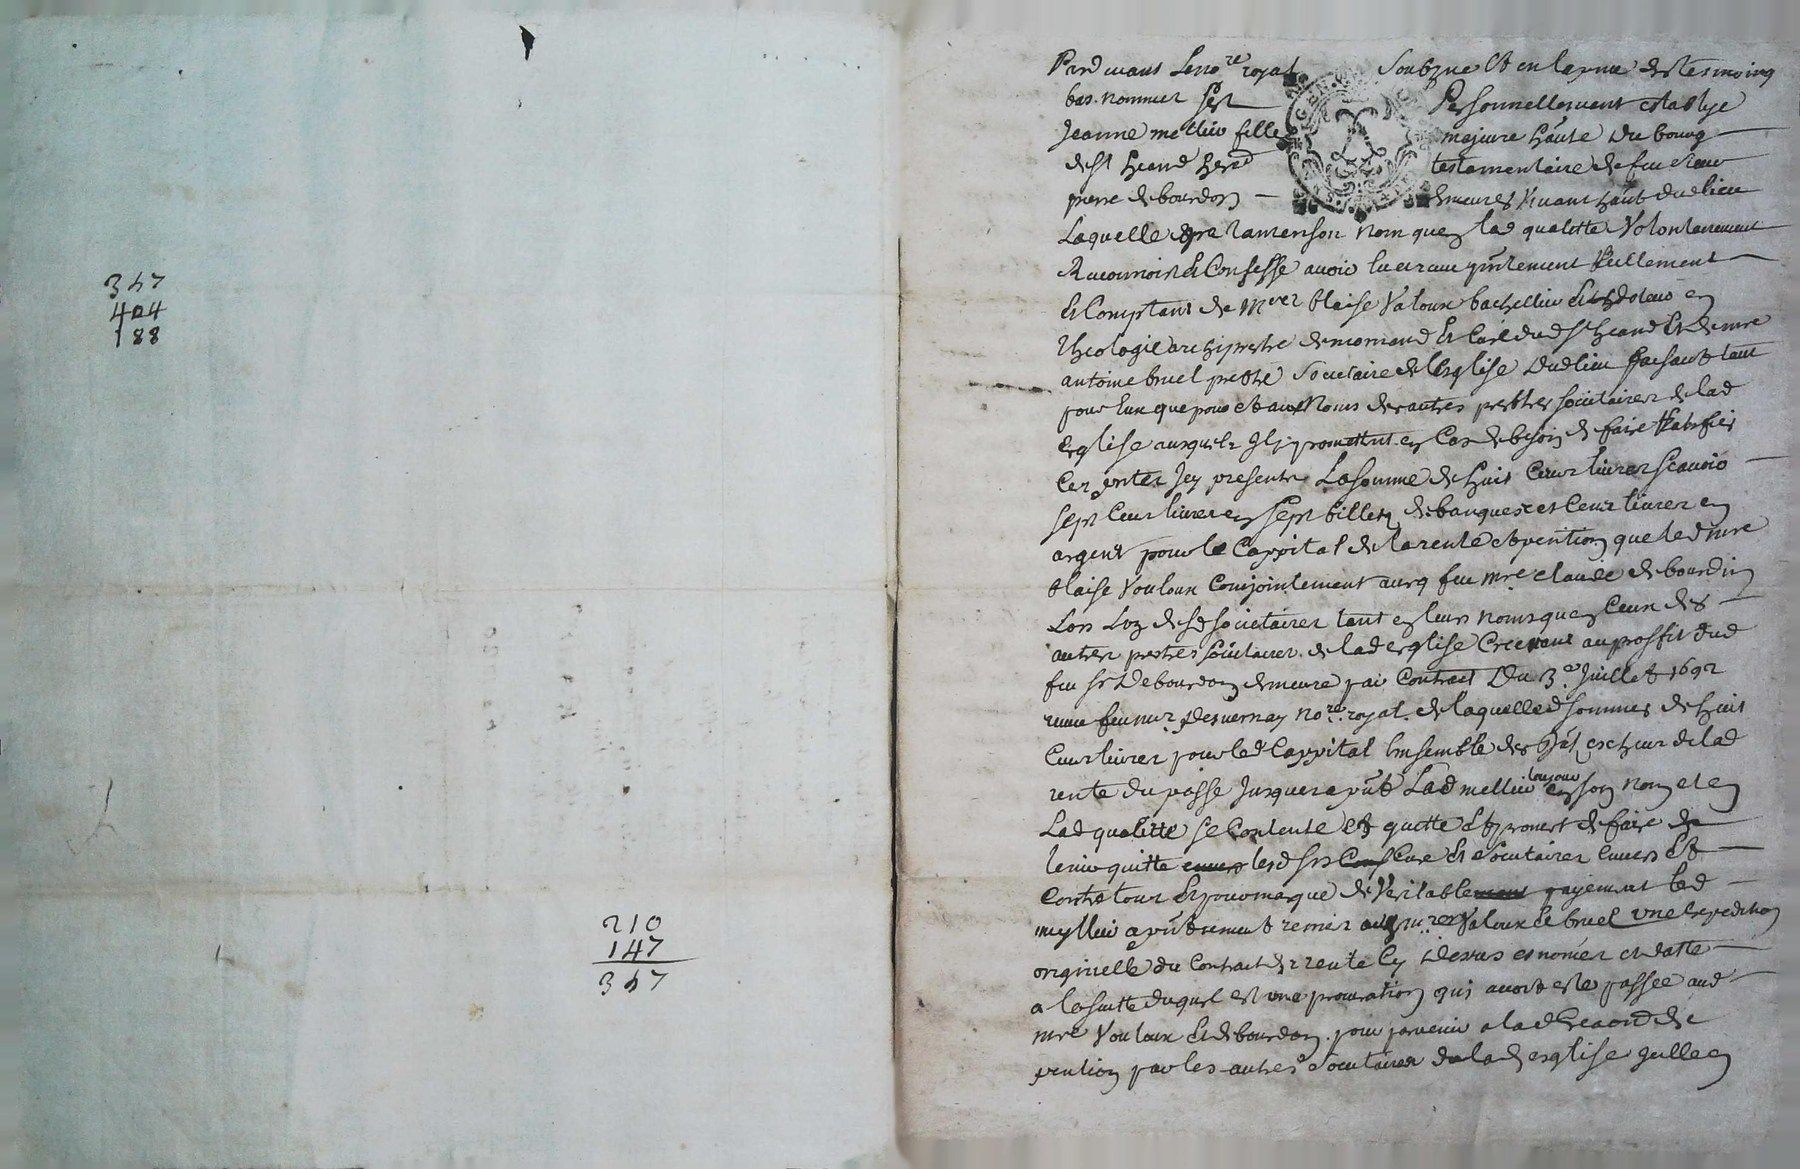 347
404
188
210
147
347
Pard. vant Le no.re royal Soubzne Et en la pnce des tesmoings
bas nommez sest Personnellement establye
Jeanne mellier fille majeure hãnte du bourg
de St heand herre testamentaire de feu
pierre de bourdon vivant hãnt dud lieu
Laquelle en son nom quen lad qualitté Volontairement
Et Confesse avoir heu et receu pñtement Reellement
Et Comptant de Mrer blaise Valoux bachellier Et doteur en
Theologie archiprestre de mornand Et Curé dud St heand Et de mre
antoine bruel prebtre Societaire de lesglise Dud lieu faisant tant
pour Eux que pour Et aux Noms des autres prebtres societaires de lad
Esglise ausquels Ils promettent en Cas de besoin de faire Ratiffier
Ces pntes Icy presents La somme de huit Cent livres scavoir
sept Cent livres en sept billets de banque et Cent livres en
argent pour le Cappital de la rente et pention que led mre
blaise Vouloux Conjointement avec feu mre claude de bourdin
Lors de sd societaires tant en leurs noms quen Ceux des
autres prestres societaires de lad esglise Creerent au proffit dud
feu Sr De bourdon par Contract Du 3.e Juillet 1692
receu feu me. Desvernay no.re royal. de laquelle somme de huit
Cent livres pour led Cappital Ensemble des de lad
rente du passé Jusques a pñt Lad mellier toujour en son nom et en
Lad qualitté se Contente et quitte Et promet de faire
tenir quitte envers lesd srs Cons Curé Et societaires envers Et
Contre tous Et pour marque de Veritablement payement lad
mellier a pñtement remis auxd mrers Valoux Et bruel une Expedition
originelle du Contract de rente Cy dessus et nomées et datté
a la suitte duquel est une procuration qui avoit este passée aud
mre Vouloux Et de bourdon pour parvenir a lad Creaon de
pention par les autres societaires de lad esglise